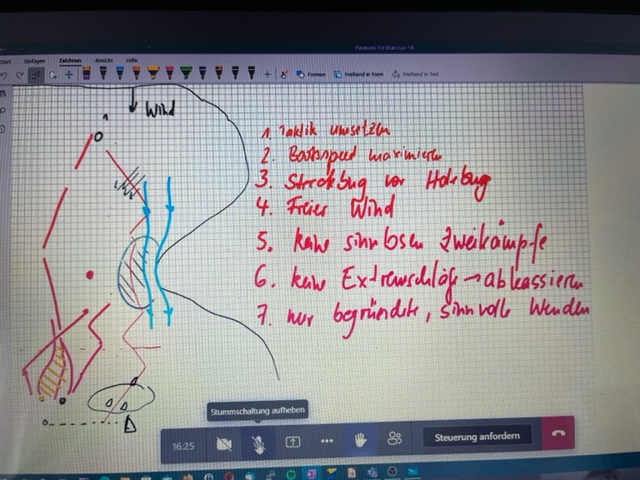 Start Einfügen Zeichnen Ansicht Hilfe
Formen Freihand in Form Freihand in Text
Wind
1. Taktik umsetzen
2. Bootsspeed maximieren
3. Streckbug vor Holebug
4. Freier Wind
5. keine sinnlosen Zweikämpfe
6. keine Extraschläge → abkassieren
7. nur begründete, sinnvolle Wenden
Stummschaltung aufheben
16:25
Steuerung anfordern